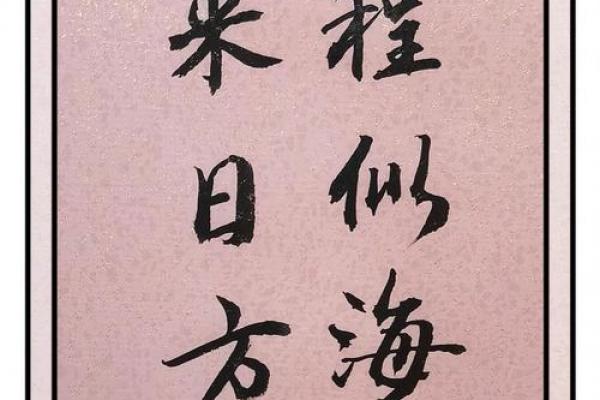 程似海
来日方